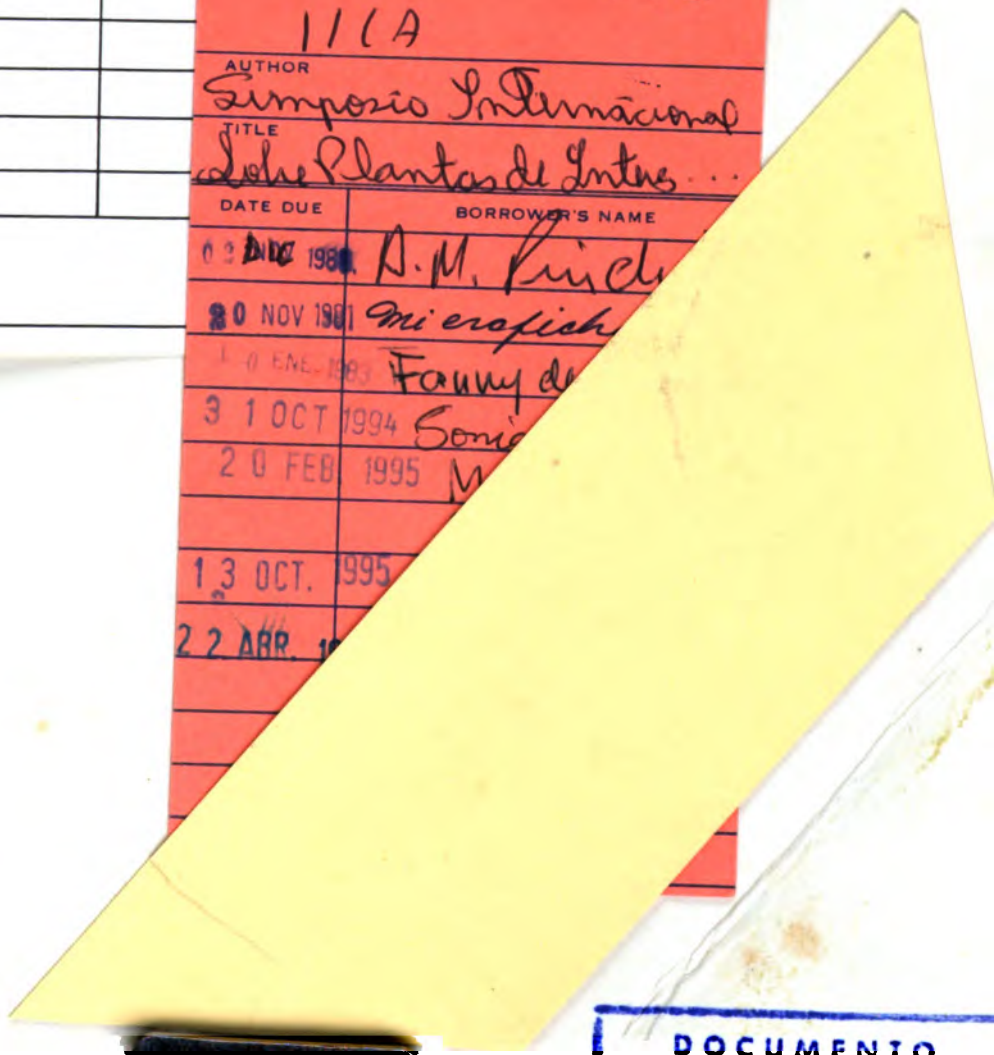 IICA
AUTHOR
Simposio Internacional
TITLE
Sobre Plantas de Interes ...
DATE DUE BORROWER'S NAME
1980 A. M. Pinch
20 NOV 1981 microfich
10 ENE. 1983 Fanny de
31 OCT 1994 Sonia
20 FEB 1995 M
13 OCT. 1995
22 ABR. 19
DOCUMENTO